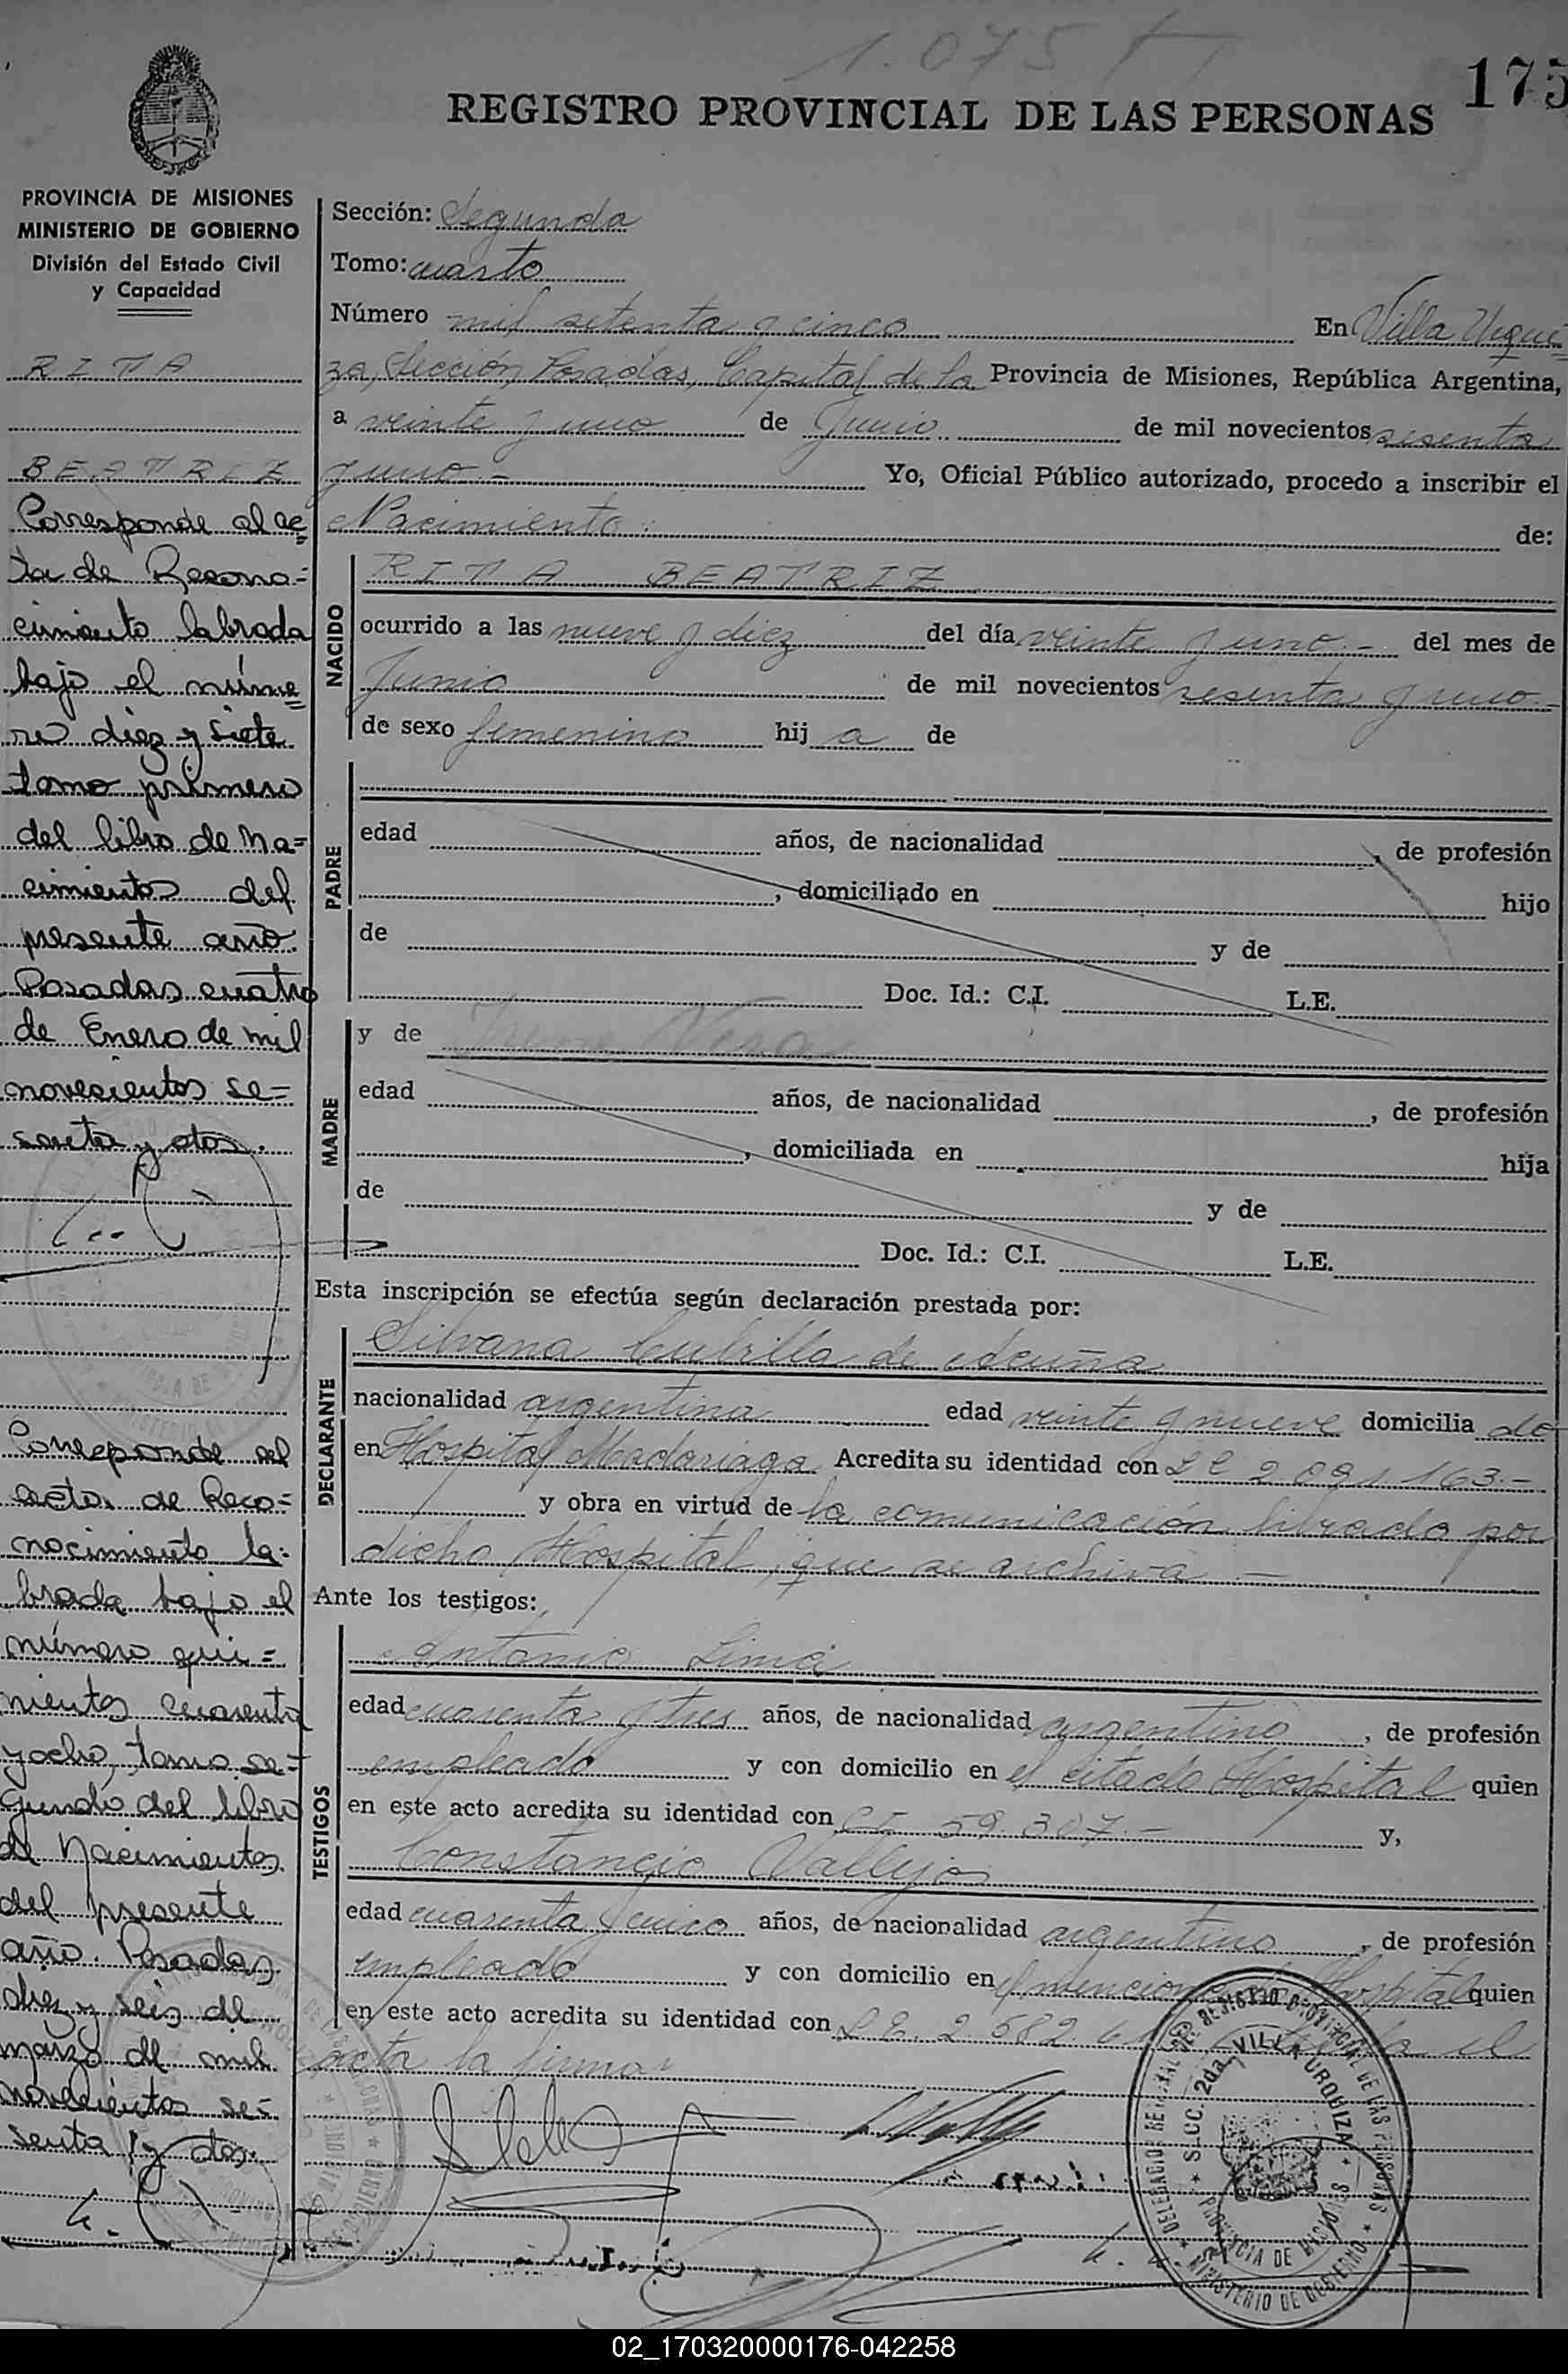 1.075
175
REGISTRO PROVINCIAL DE LAS PERSONAS
PROVINCIA DE MISIONES
MINISTERIO DE GOBIERNO
División del Estado Civil
y Capacidad
RITA
BEATRIZ
Corresponde al ac=
ta de Recono=
cimiento labrada
bajo el núme=
ro diez y siete
tomo primero
del libro de Na=
cimientos del
presente año.
Posadas cuatro
de Enero de mil
novecientos se=
senta y dos.
Corresponde al
acta de Reco=
nocimiento la=
brada bajo el
número qui=
nientos cuarenta
y ocho, tomo se=
gundo del libro
de Nacimientos
del presente
año. Posadas
diez y seis de
marzo de mil
novecientos se=
senta y dos.
Sección: Segunda
Tomo: cuarto
Número mil setenta y cinco En Villa Urqui=
za, Sección Posadas, Capital de la Provincia de Misiones, República Argentina,
a veinte y uno de Junio de mil novecientos sesenta
y uno.- Yo, Oficial Público autorizado, procedo a inscribir el
Nacimiento de:
NACIDO
RITA BEATRIZ
ocurrido a las nueve y diez del día veinte y uno.- del mes de
Junio de mil novecientos sesenta y uno.-
de sexo femenino hij a de
PADRE
edad años, de nacionalidad , de profesión
, domiciliado en hijo
de y de
Doc. Id.: C.I. L.E.
MADRE
y de Irene
edad años, de nacionalidad , de profesión
, domiciliada en hija
de y de
Doc. Id.: C.I. L.E.
Esta inscripción se efectúa según declaración prestada por:
DECLARANTE
Silvana Cubilla de Acuña
nacionalidad argentina edad veinte y nueve domicilia da
en Hospital Madariaga Acredita su identidad con L C 2.091.163.-
y obra en virtud de la comunicación librada por
dicho Hospital, que se archiva.-
Ante los testigos:
TESTIGOS
Antonio
edad cuarenta y tres años, de nacionalidad argentino , de profesión
empleado y con domicilio en el citado Hospital quien
en este acto acredita su identidad con CI 59.307.- y,
Constancio Vallejos
edad cuarenta y cinco años, de nacionalidad argentino , de profesión
empleado y con domicilio en el mencionado Hospital quien
en este acto acredita su identidad con L E. 2.582. el
acta la firman
DELEGACIÓN DEL REGISTRO PROVINCIAL DE LAS PERSONAS
SECC. 2da. VILLA URQUIZA
PROVINCIA DE MISIONES
MINISTERIO DE GOBIERNO
02_170320000176-042258